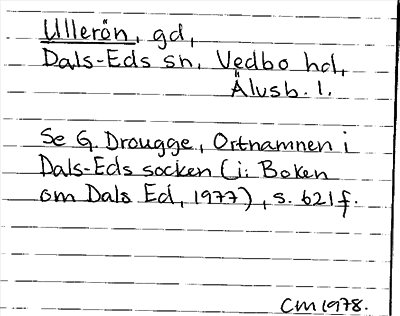 Ullerön, gd,
Dals-Eds sn, Vedbo hd,
Älvsb. l.
Se G. Drougge, Ortnamnen i
Dals-Eds socken (i: Boken
om Dals Ed, 1977), s. 621f.
CM 1978.